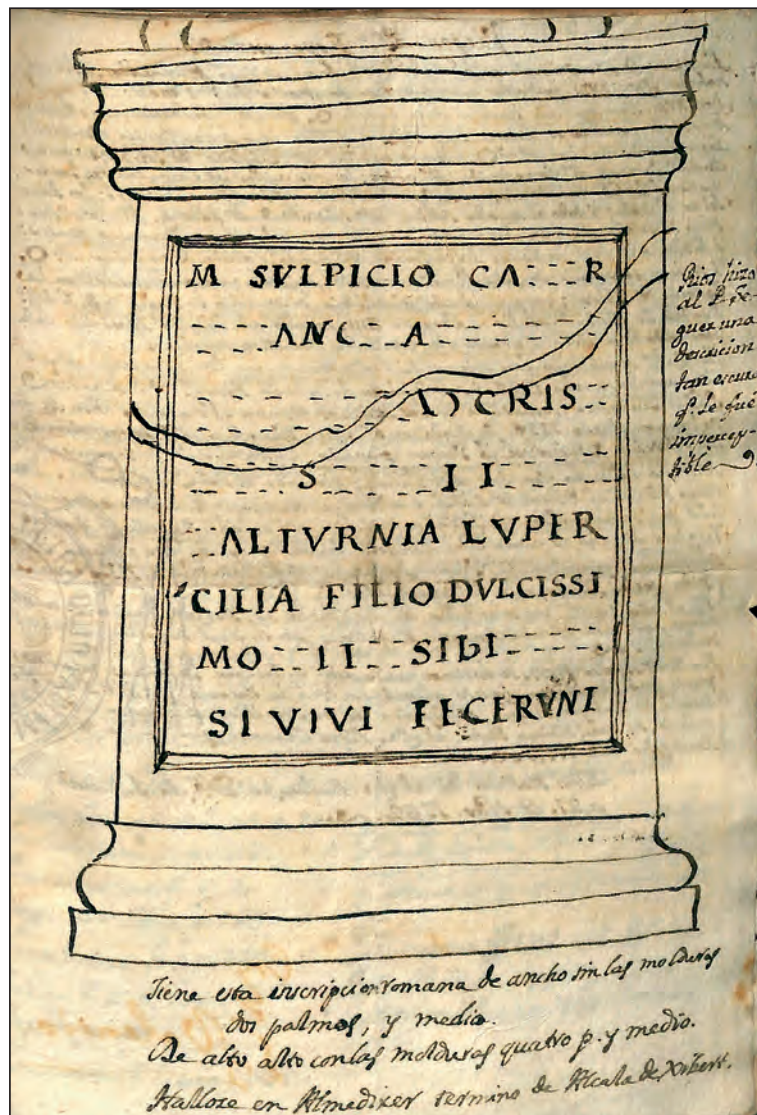 M SVLPICIO CA R
ANC A
CRIS
S II
ALTVRNIA LVPER
CILIA FILIO DVLCISSI
MO II SIBI
SI VIVI FECERVNI
Rios hizo
al P. Se-
guer una
descricion
tan escura
q. le fué
impercep-
tible
Tiene esta inscripcion romana de ancho sin las molduras
dos palmos, y medio.
De alto alto con las molduras quatro p. y medio.
Hallose en Almedixer termino de Alcala de Xibert.